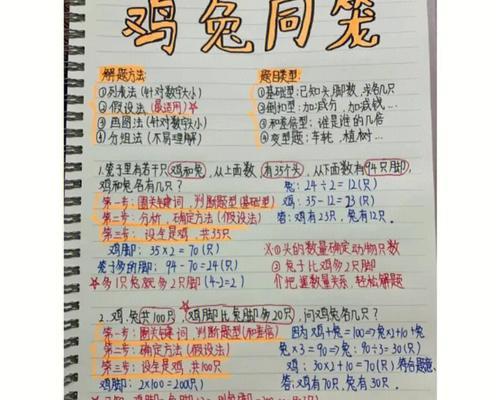 鸡兔同笼
解题方法:
①列表法（针对数字小）
②假设法（最适用）☆
③画图法（针对数字小）
④分组法（不易理解）
题目类型:
①基础型:已知头脚数,求各几只
②倒扣型:加减分,加减钱...
③和差倍型:谁是谁的几倍
④变型题:车轮,植树...
1.笼子里有若干只鸡和兔,从上面数,有35个头,从下面数有94只脚,
鸡和兔各有几只?
第一步:圈关键词,判断题型(基础型)
第二步:分析,确定方法(假设法)
第三步:设全是鸡,共35只
鸡脚: 35×2=70(只)
兔子多的脚: 94-70=24(只)
★多1只兔就多2只脚(4-2=2)
兔: 24÷2=12(只)
鸡: 35-12=23(只)
答:鸡有23只,兔有12只。
※①头的数量确定动物只数
②兔子比鸡多2只脚
把握数量关系,轻松解题
2.鸡,兔共100只,鸡脚比兔脚多20只,问鸡兔各几只?
第一步:圈关键词,判断题型(和差倍)
第二步:确定方法(假设法)
第三步:设全是鸡,共100只
鸡脚: 2×100=200(只)
兔×3=90⇒兔:90÷3=30(只)
鸡: 30×2+10=70(只)
答:鸡有70只,兔有30只.